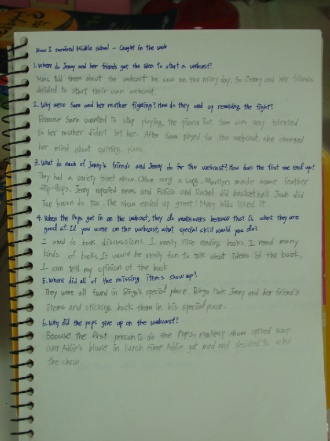 How I survived Middle school - Caught in the web
1. Where do Jenny and her friends get the idea to start a webcast?
told them about the webcast he saw on the other day. So Jenny and her friends
decided to start their own webcast.
2. Why were Sam and her mother fighting? How do they end up resolving the fight?
Because Sam wanted to stop playing the piano but Sam was very talented
so her mother didn't let her. After Sam played for the webcast, she changed
her mind about quitting piano.
3. What do each of Jenny's friends and Jenny do for the webcast? How does the first one end up?
They had a variety show. Chloe sang a song. Marilyn made some feather
flip-flops. Jenny reported news and Felicia and Rachel did basketball. Josh did
too. The show ended up great! Many kids liked it.
4. When the Pops get in on the webcast, they do makeovers because that is what they are
good at. If you were on the webcast, what special skill would you do?
I want to do book discussions. I really like reading books. I read many
kinds of books. It would be really fun to talk about ideas of the book.
I can tell my opinion of the book
5. Where did all of the missing items show up?
They were all found in special place. Jenny and her friend's
items and sticking them in his special place.
6. Why did the pops give up on the webcast?
Because the first person to do the Pops makeup show spilled soup
over Addie's blouse in lunch time Addie got mad and decided to
the show.